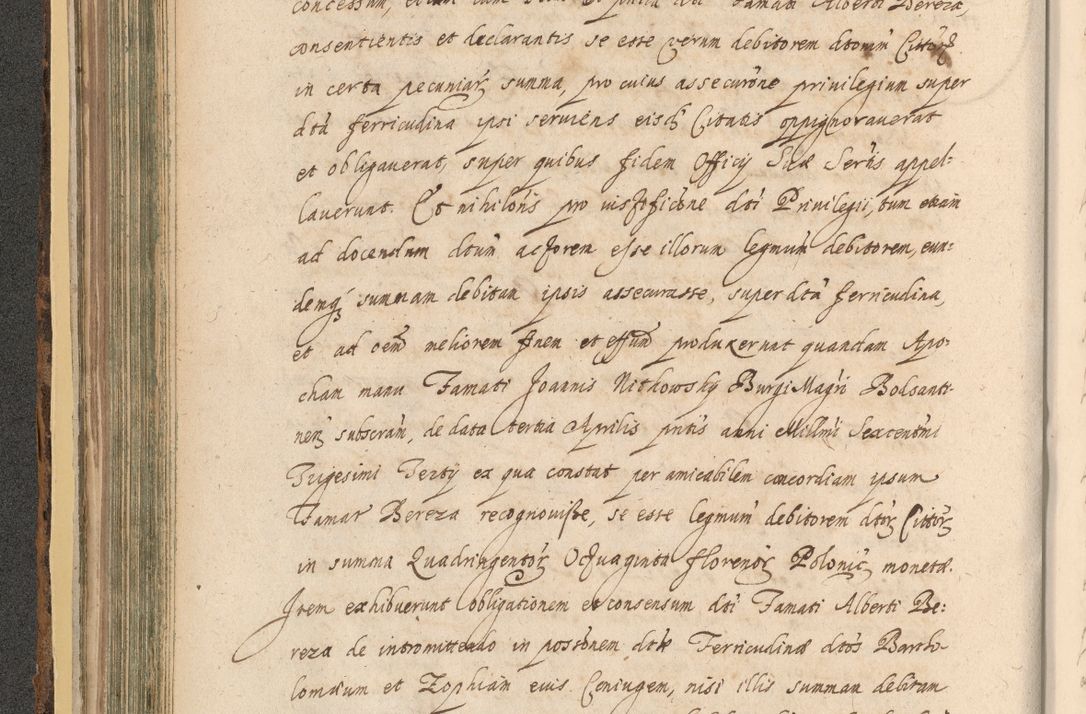 consentientis et declarantis se esse verum debitorem dtorum Cittor
in certa pecuniar summa, pro cuius assecuróne privilegium super
dtá ferricudina ipsi serviens eisd Citatis oppignoraverat
et obligaverat, super quibus fidem Officij Suae Sertis appel-
laverunt. Et nihilois pro iustificióne dti Privilegii, tum etiam
ad docendum dtum actorem esse illorum legmum debitorem, eun:
demq summam debitam ipsis assecurasse, super dtá ferricudina,
et ad oem meliorem finem et effum produxerunt quandam Apo:
cham manu Famati Joannis Nithowsky BurgiMagri Bolsanti-
nen subscram, de data tertia Aprilis pntis anni Millmi Sexcentmi
Trigesimi Tertij ex qua constat per amicabilem concordiam ipsum
Famat Bereza recognovisse, se esse legmum debitorem dtor Cittor
in summa Quadringentor Octuaginta florenor Polonic monetae.
Item exhibuerunt obligationem et consensum dti Famati Alberti Be:
reza de intromittendo in possónem dtae Ferricudinae dtos Bartho-
lomaeum et Zophiam eius Coniugem, nisi illis summam debitam